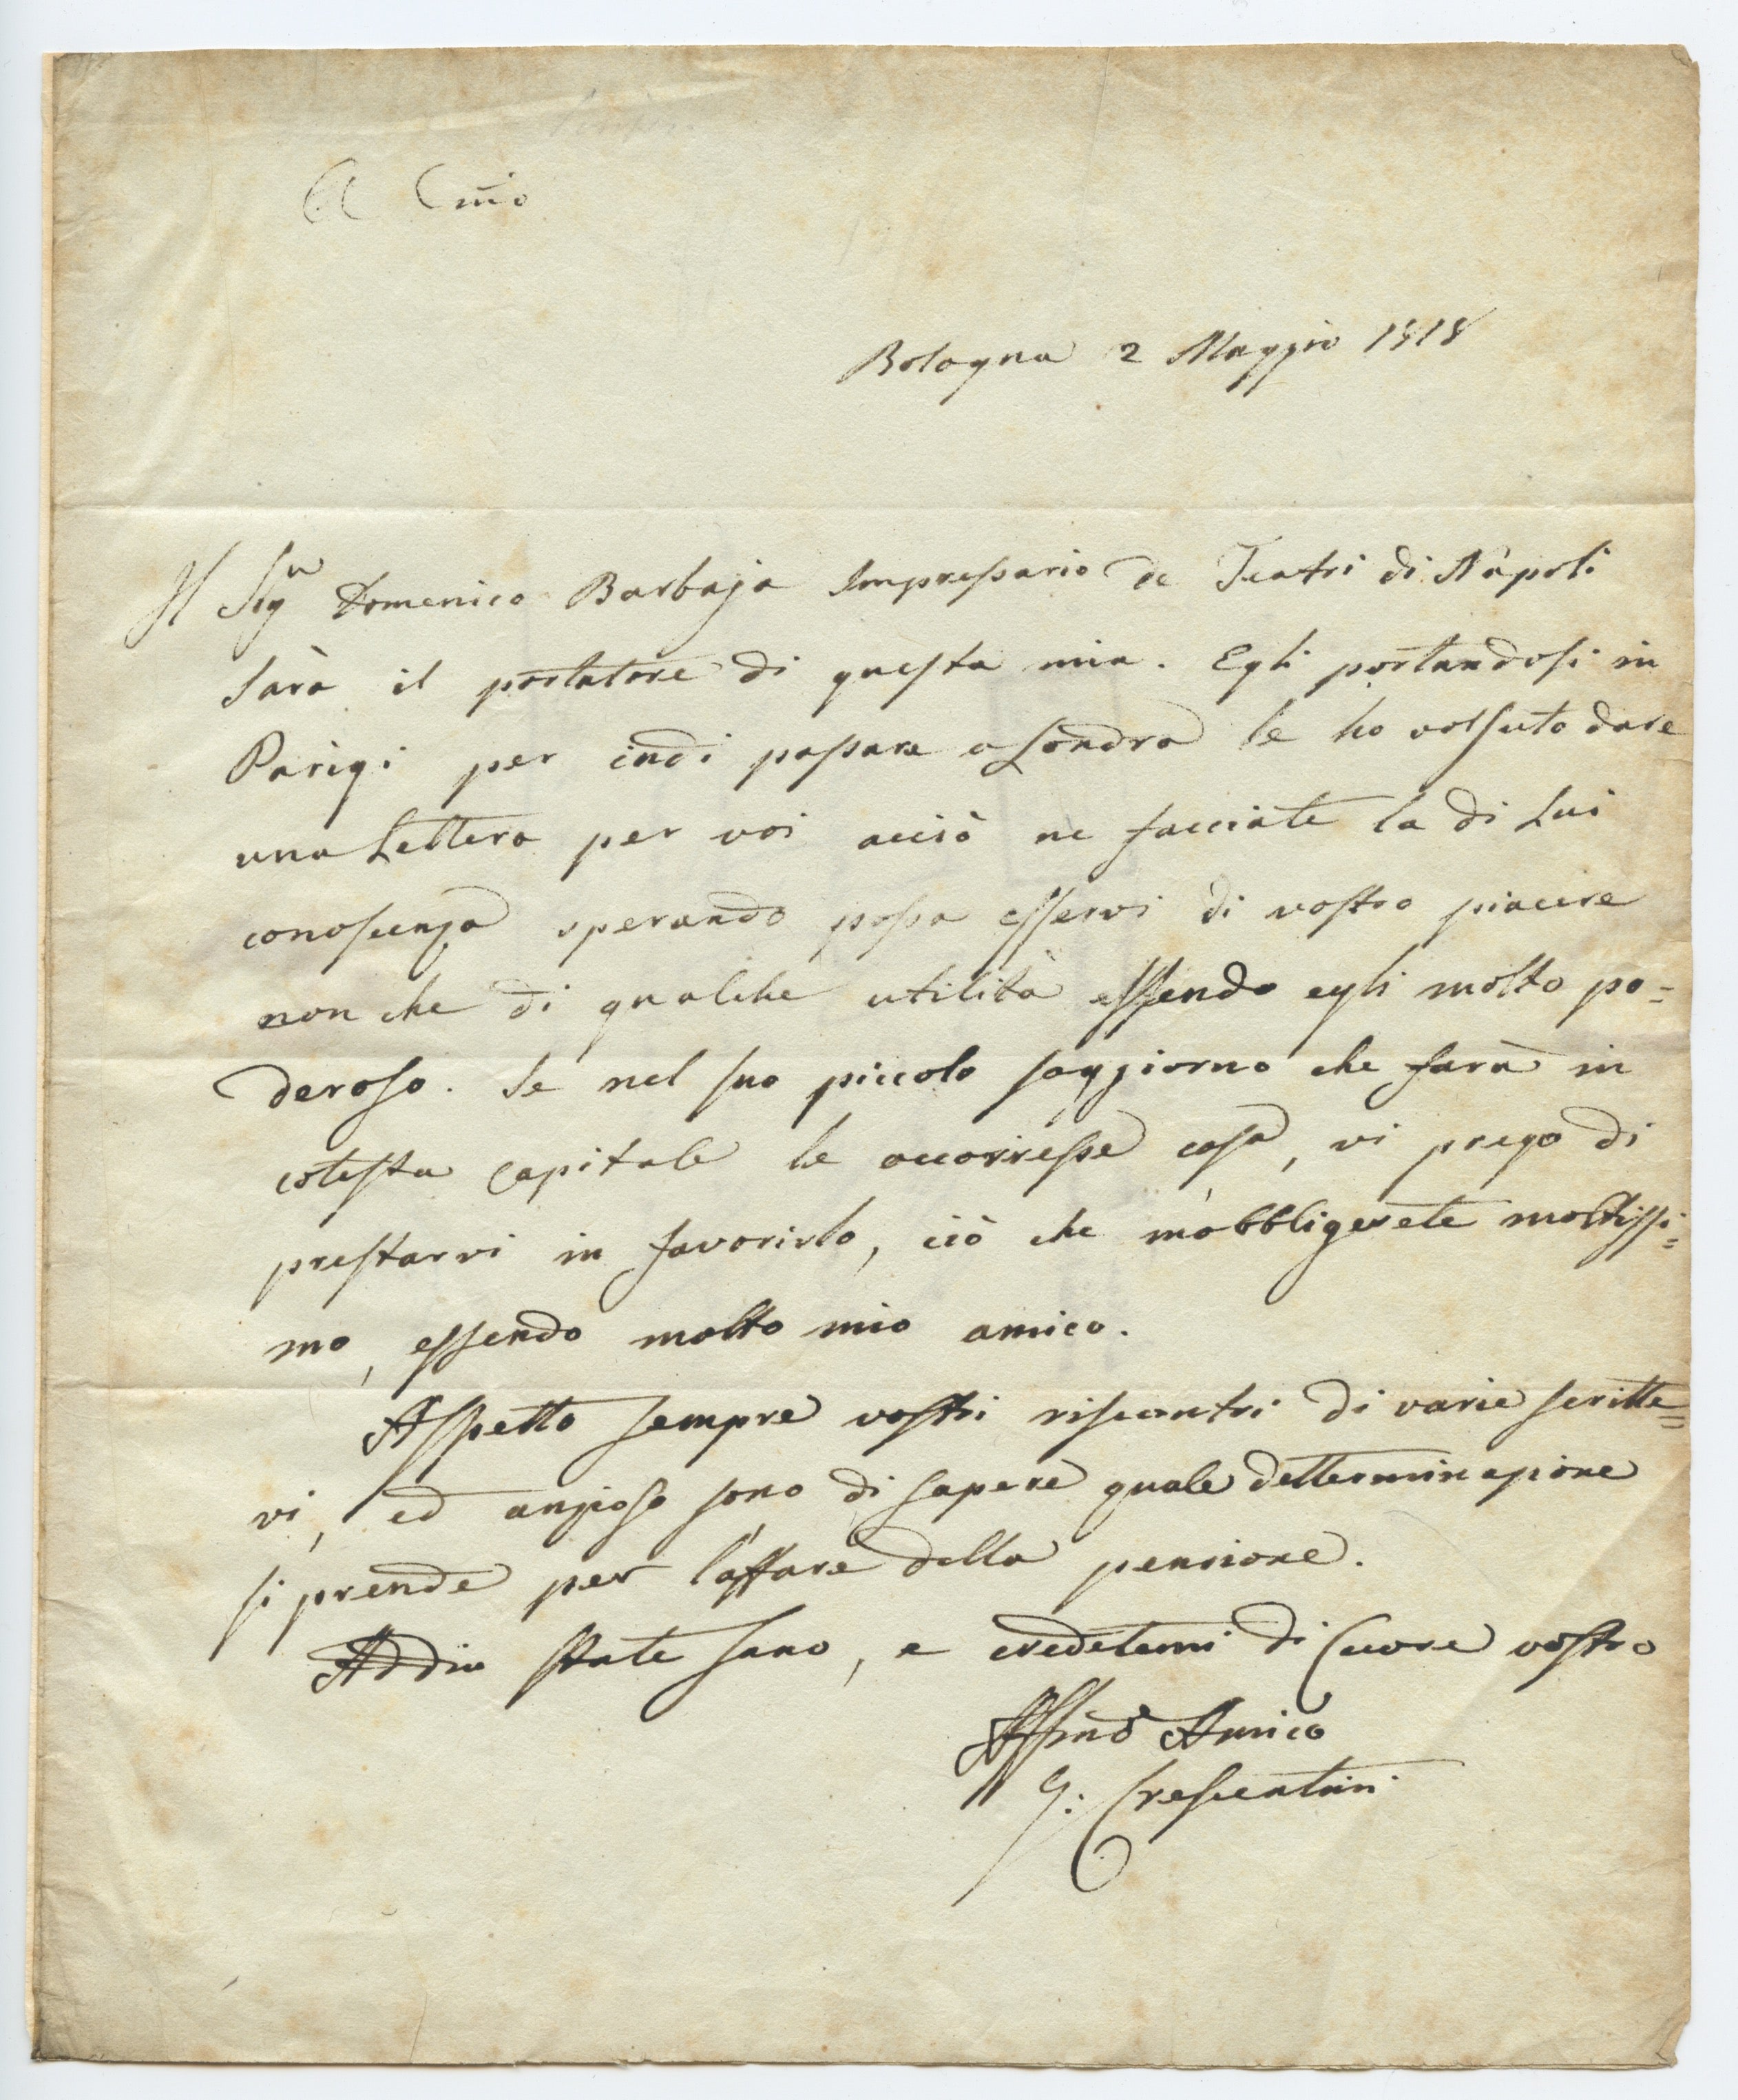 C. C.mio
Bologna 2 Maggio 1818
Il Sigr Domenico Barbaja Impressario de Teatri di Napoli
sarà il portatore di questa mia. Egli portandosi in
Parigi per indi passare a Londra le ho volsuto dare
una Lettera per voi acciò ne facciate la di Lui
conoscenza sperando possa esservi di vostro piacere
non che di qualche utilità essendo egli molto po=
deroso. Se nel suo piccolo soggiorno che farà in
cotesta Capitale le occorresse cosa, vi prego di
prestarvi in favorirlo, ciò che m'obbligerete moltissi=
mo, essendo molto mio amico.
Aspetto sempre vostri riscontri di varie scritte=
vi, ed anzioso sono di sapere quale detterminazione
si prende per l'affare della pensione.
Addio state sano, e credetemi di Cuore vostro
Affmo Amico
G: Crescentini